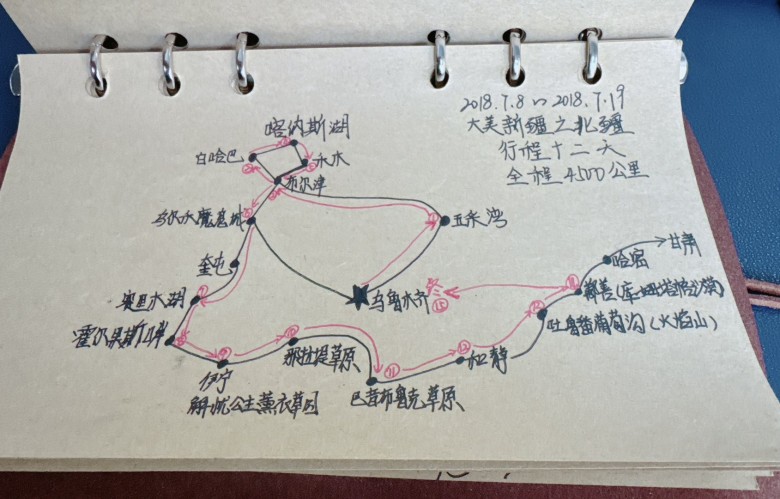 2018.7.8~2018.7.19
大美新疆之北疆
行程十二天
全程4500公里
喀纳斯湖
白哈巴
禾木
布尔津
乌尔禾魔鬼城
五彩湾
奎屯
赛里木湖
乌鲁木齐
终
⑮
哈密
甘肃
鄯善(库姆塔格沙漠)
吐鲁番葡萄沟(火焰山)
霍尔果斯口岸
伊宁
解忧公主薰衣草园
那拉提草原
巴音布鲁克草原
和静
⑪